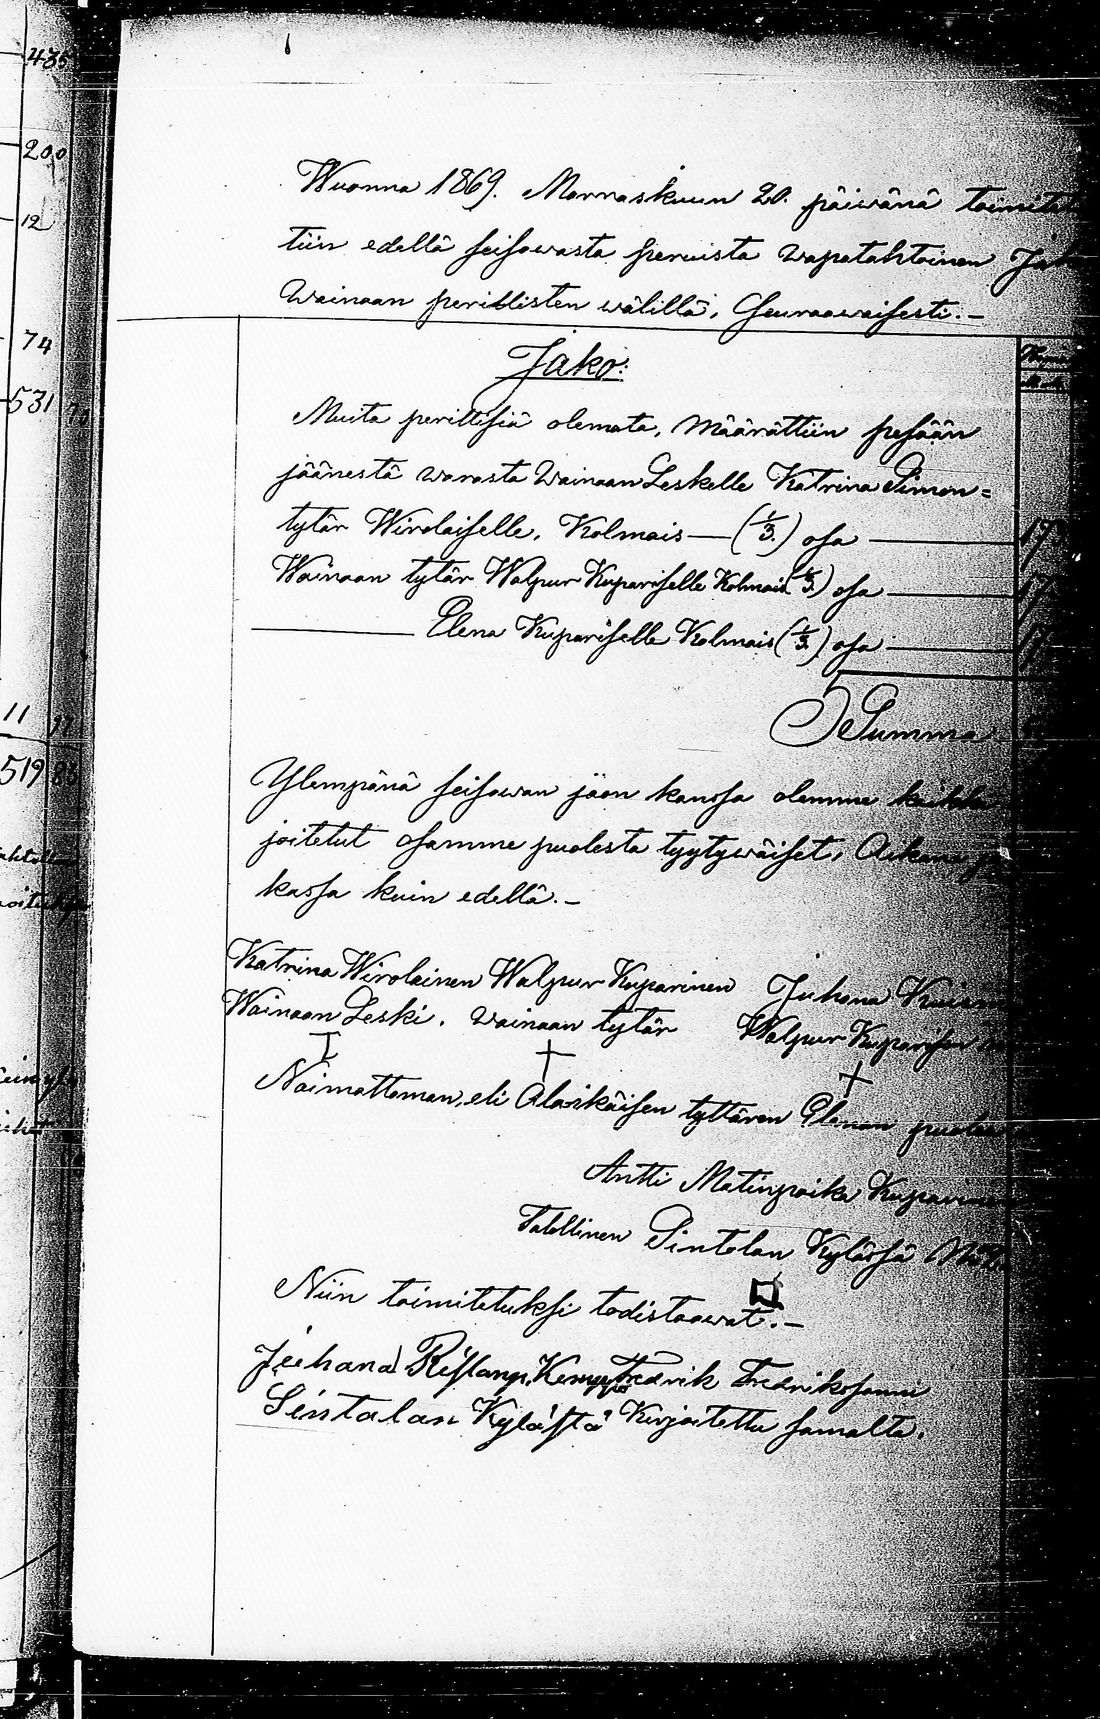 435
200
12
74
531
11
519
Wuonna 1869. Marraskuun 20. päiwänä toimitet
tiin edellä seisowasta peruista wapatahtoinen Jako
Wainaan perillisten wälillä, Seuraawaisesti.—
Jako:
Muita perillisiä olemata, Määrättiin pesään
jäänestä warasta Wainaan Leskelle Katrina Simon=
tytär Wirolaiselle, Kolmais—(1/3.) osa 17
Wainaan tytär Walpur Kupariselle Kolmais (1/3.) osa 17
Elena Kupariselle Kolmais (1/3.) osa 17
Summa
Ylempänä seisowan jaon kanssa olemme kaikki
joitetut osamme puolesta tyytywäiset, Aikana
kassa kuin edellä.—
Katrina Wirolainen Walpur Kuparinen Juhana
Wainaan Leski. wainaan tytär Walpur Kuparisen
Naimattoman, eli Alaikäisen tyttären Elenan puolesta
Antti Matinpoika Kuparinen
Talollinen Sintolan Kylässä
Niin toimitetuksi todistaawat.—
Juhana Fredrik Fredrikssonni
Sintalan Kylästä Kirjoitettu samalta.